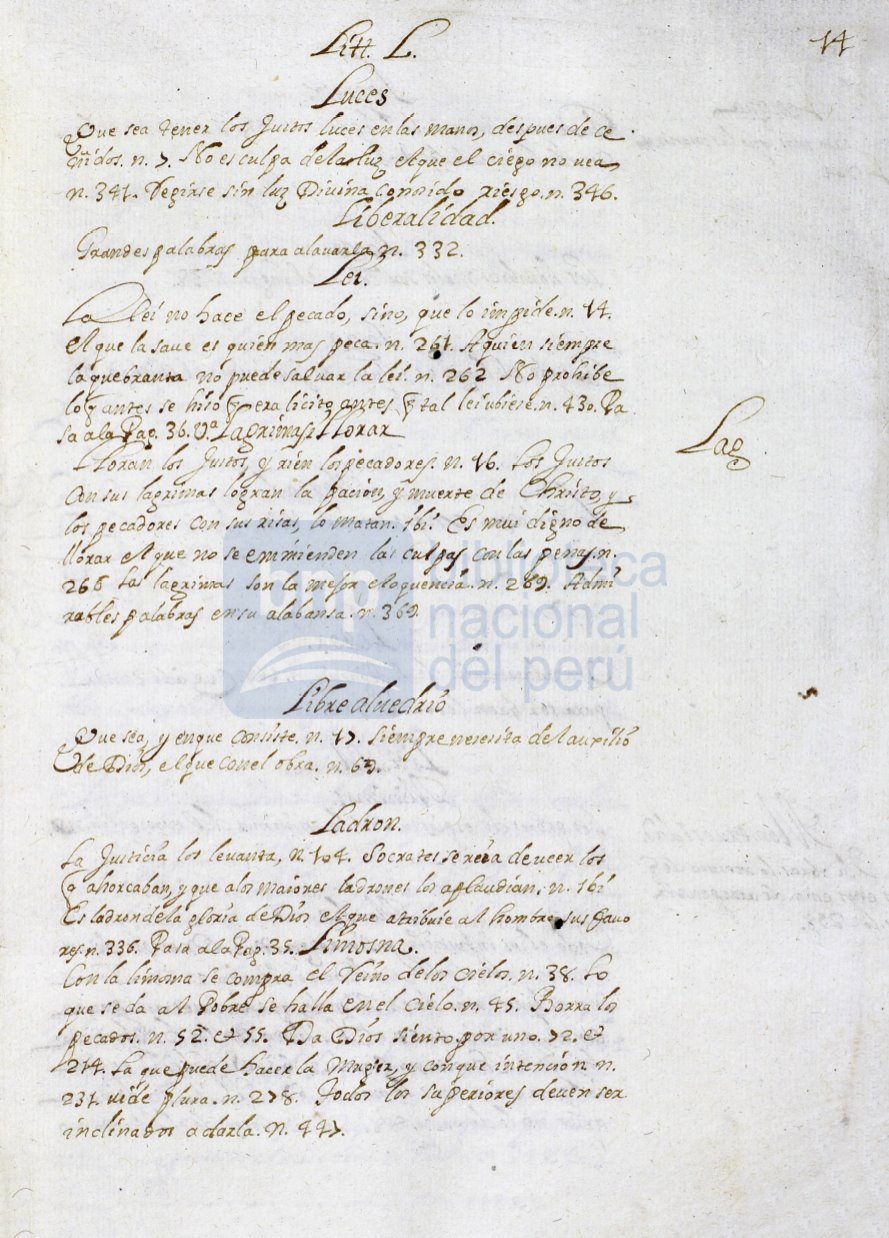 Litt. L.
14
Luces
Que sea tener los Justos luces en las manos, despues de ce
ñidos. n. 7. No es culpa de la luz el que el ciego no vea,
n. 341. Regirse sin luz Divina conosido riesgo. n. 346.
Liberalidad.
Grandes palabras para alauarla, n. 332.
Lei.
La lei no hace el pecado, sino, que lo impide. n. 14.
el que la saue es quien mas peca. n. 261. A quien siempre
la quebranta no puede saluar la lei. n. 262 No prohibe
lo q̃ antes se hiso q̃ era licito antes q̃ tal lei ubiese. n. 430. Pa
sa a la Pag. 36. Vª Lagrimas i Llorar
Lag.
Lloran los Justos, y rien los pecadores. n. 16. Los Justos
con sus lagrimas logran la pacion, y muerte de Christo, y
los pecadores con sus risas, lo matan. ibi. Es mui digno de
llorar el que no se emmienden las culpas con las penas. n.
266 Las lagrimas son la mejor eloquencia. n. 289. Admi
rables palabras en su alabansa. n. 369.
Libre aluedrio
Que sea, y en que consiste, n. 17. siempre nesesita del auxilio
de Dios, el que con el obra. n. 69.
Ladron.
La Justicia los leuanta, n. 104. Socrates se reia de ueer los
q̃ ahorcaban, y que a los maiores ladrones los aplaudian. n. ibi
Es ladron de la gloria de Dios el que atribuie al hombre sus fauo
res. n. 336. Pasa a la Pag. 35. Limosna.
Con la limosna se compra el Reino de los cielos. n. 38. Lo
que se da al Pobre se halla en el cielo. n. 45. Borra los
pecados. n. 52. et 55. Da Dios siento por uno. 72. et
214. La que puede hacer la Muger, y con que intencion. n.
231. uide plura. n. 278. Todos los superiores deuen ser
inclinados a darla. n. 447.
biblioteca
nacional
del perú